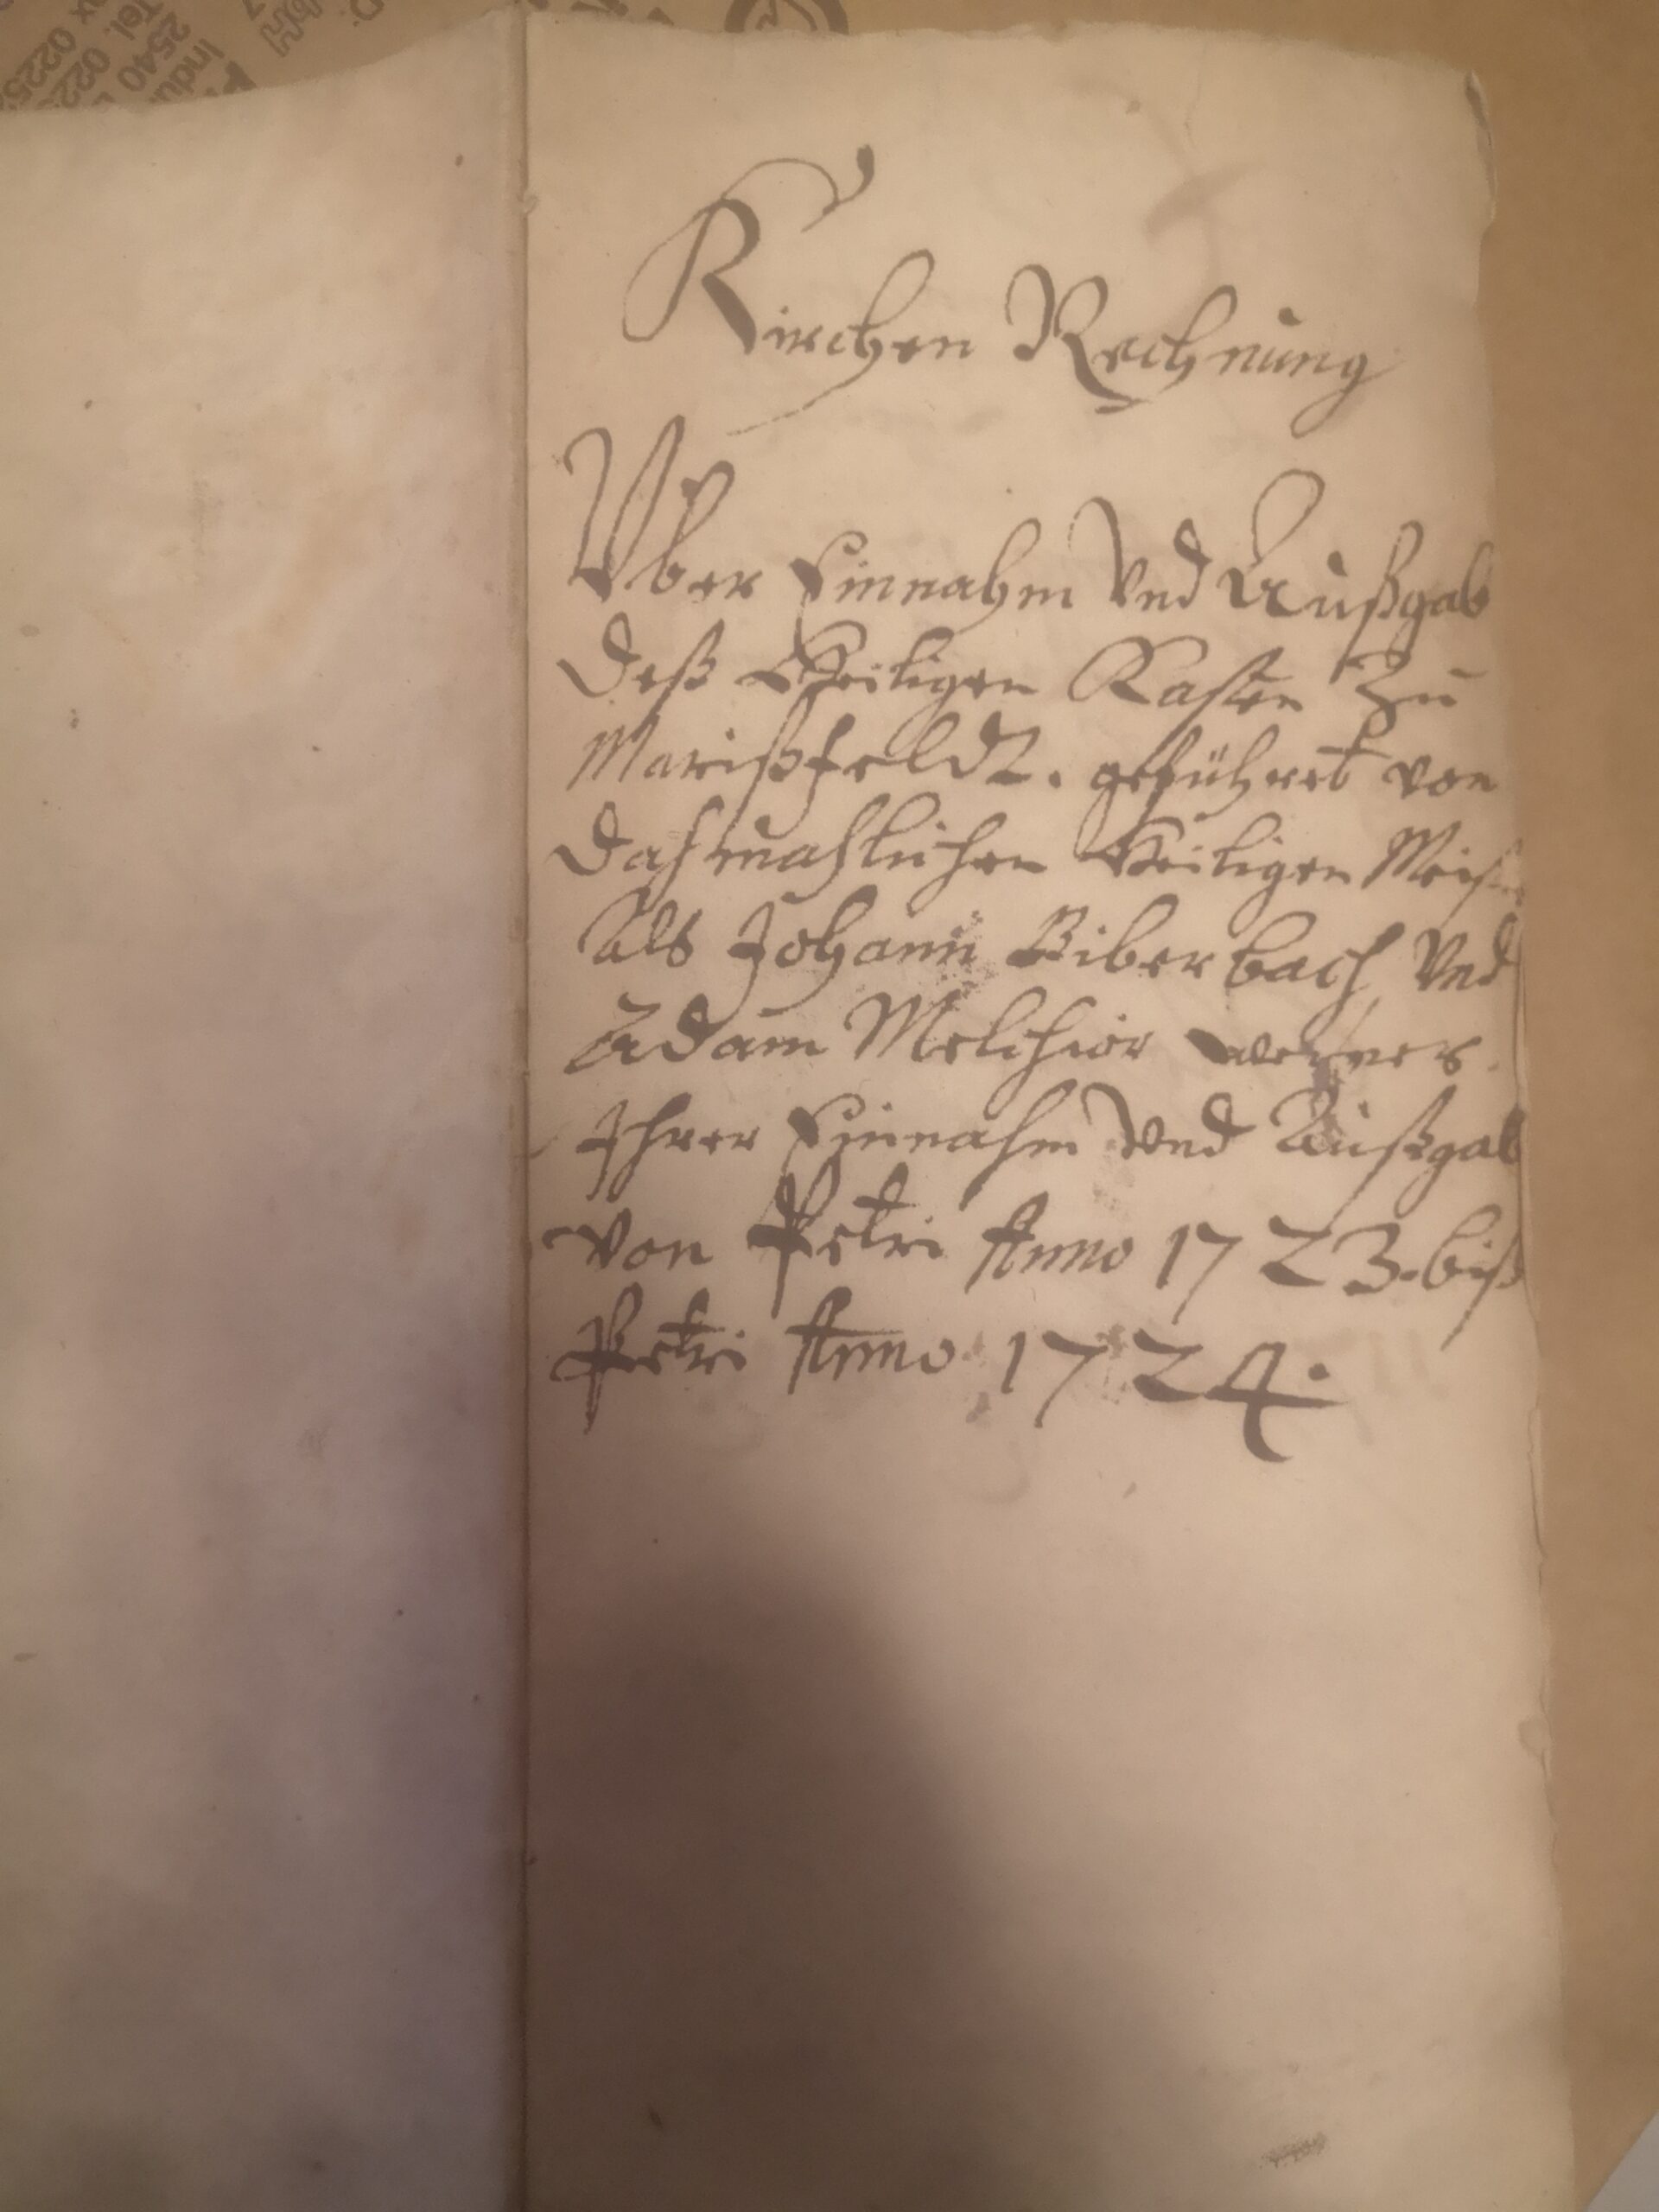 Kirchen Rechnung
Vber Einnahm Vnd Außgab
Deß Heiligen Kasten Zu
Marißfeldt. geführet von
Dahmahlichen Heiligen
Als Johann Biberbach Vnd
Adam Melchior
Ihrer Einnahm Vnd Außgab
Von Petri Anno 1723. biß
Petri Anno 1724.
Tel. 022
2540